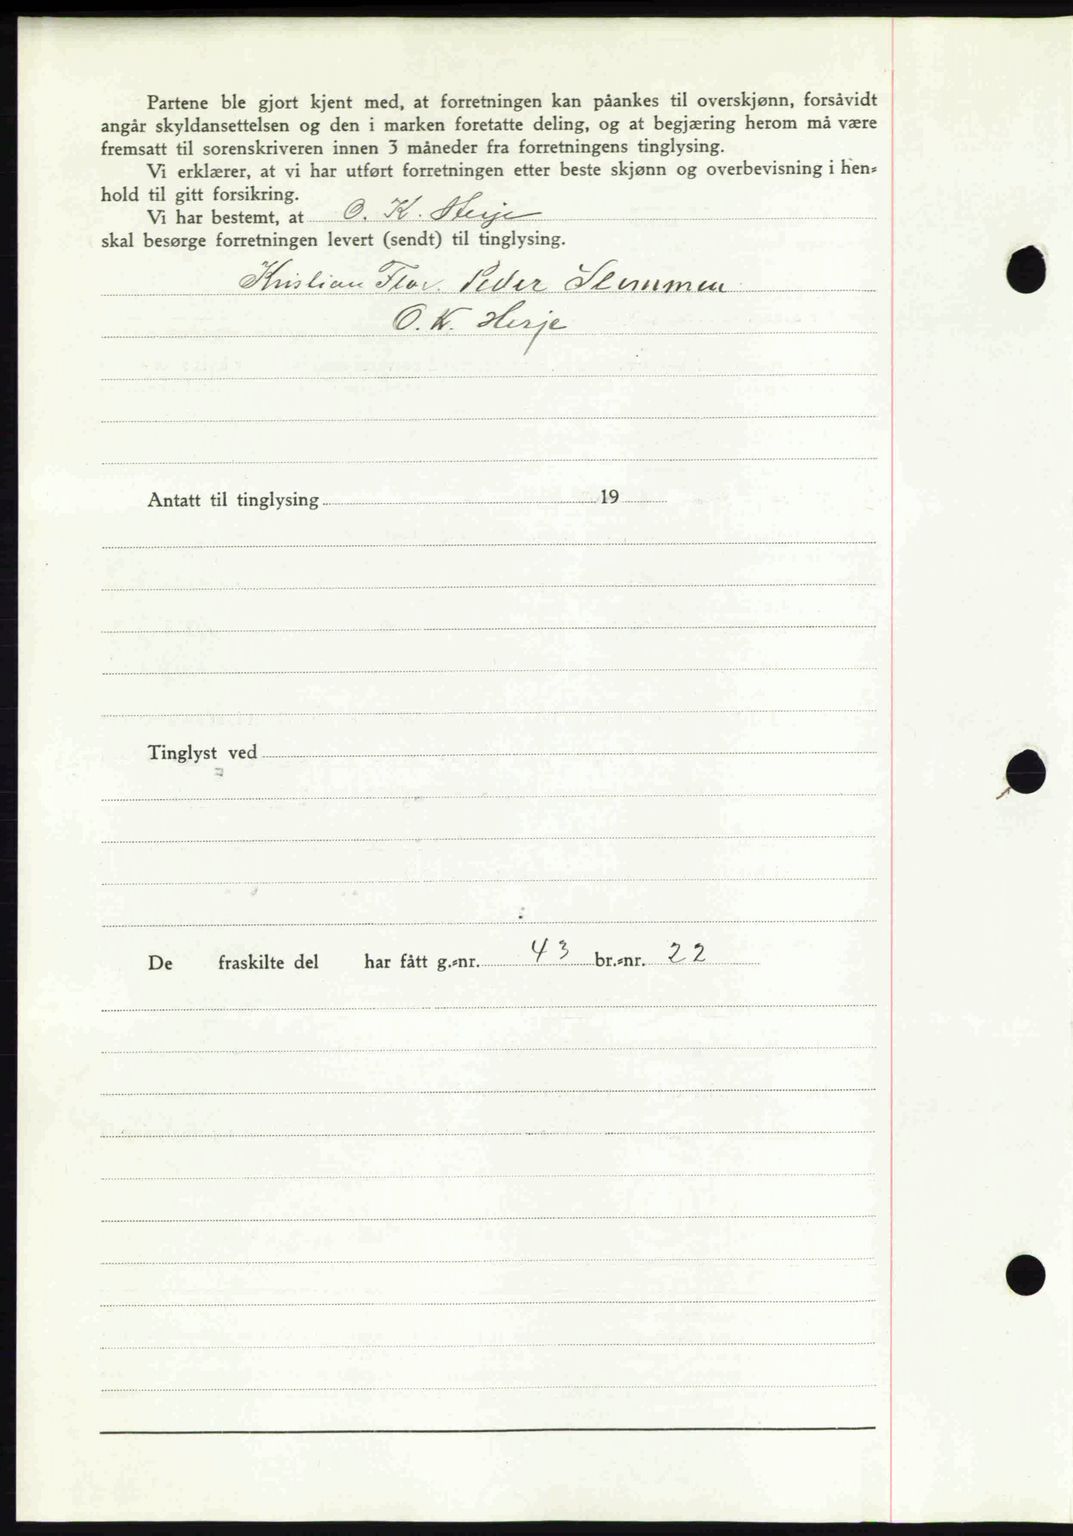 Partene ble gjort kjent med, at forretningen kan påankes til overskjønn, forsåvidt
angår skyldansettelsen og den i marken foretatte deling, og at begjæring herom må være
fremsatt til sorenskriveren innen 3 måneder fra forretningens tinglysing.
Vi erklærer, at vi har utført forretningen etter beste skjønn og overbevisning i hen-
hold til gitt forsikring.
Vi har bestemt, at O. K. Herje
skal besørge forretningen levert (sendt) til tinglysing.
Kristian Flov. Peder Slemmen
O. K. Herje
Antatt til tinglysing 19
Tinglyst ved
De fraskilte del har fått g.-nr. 43 br.-nr. 22